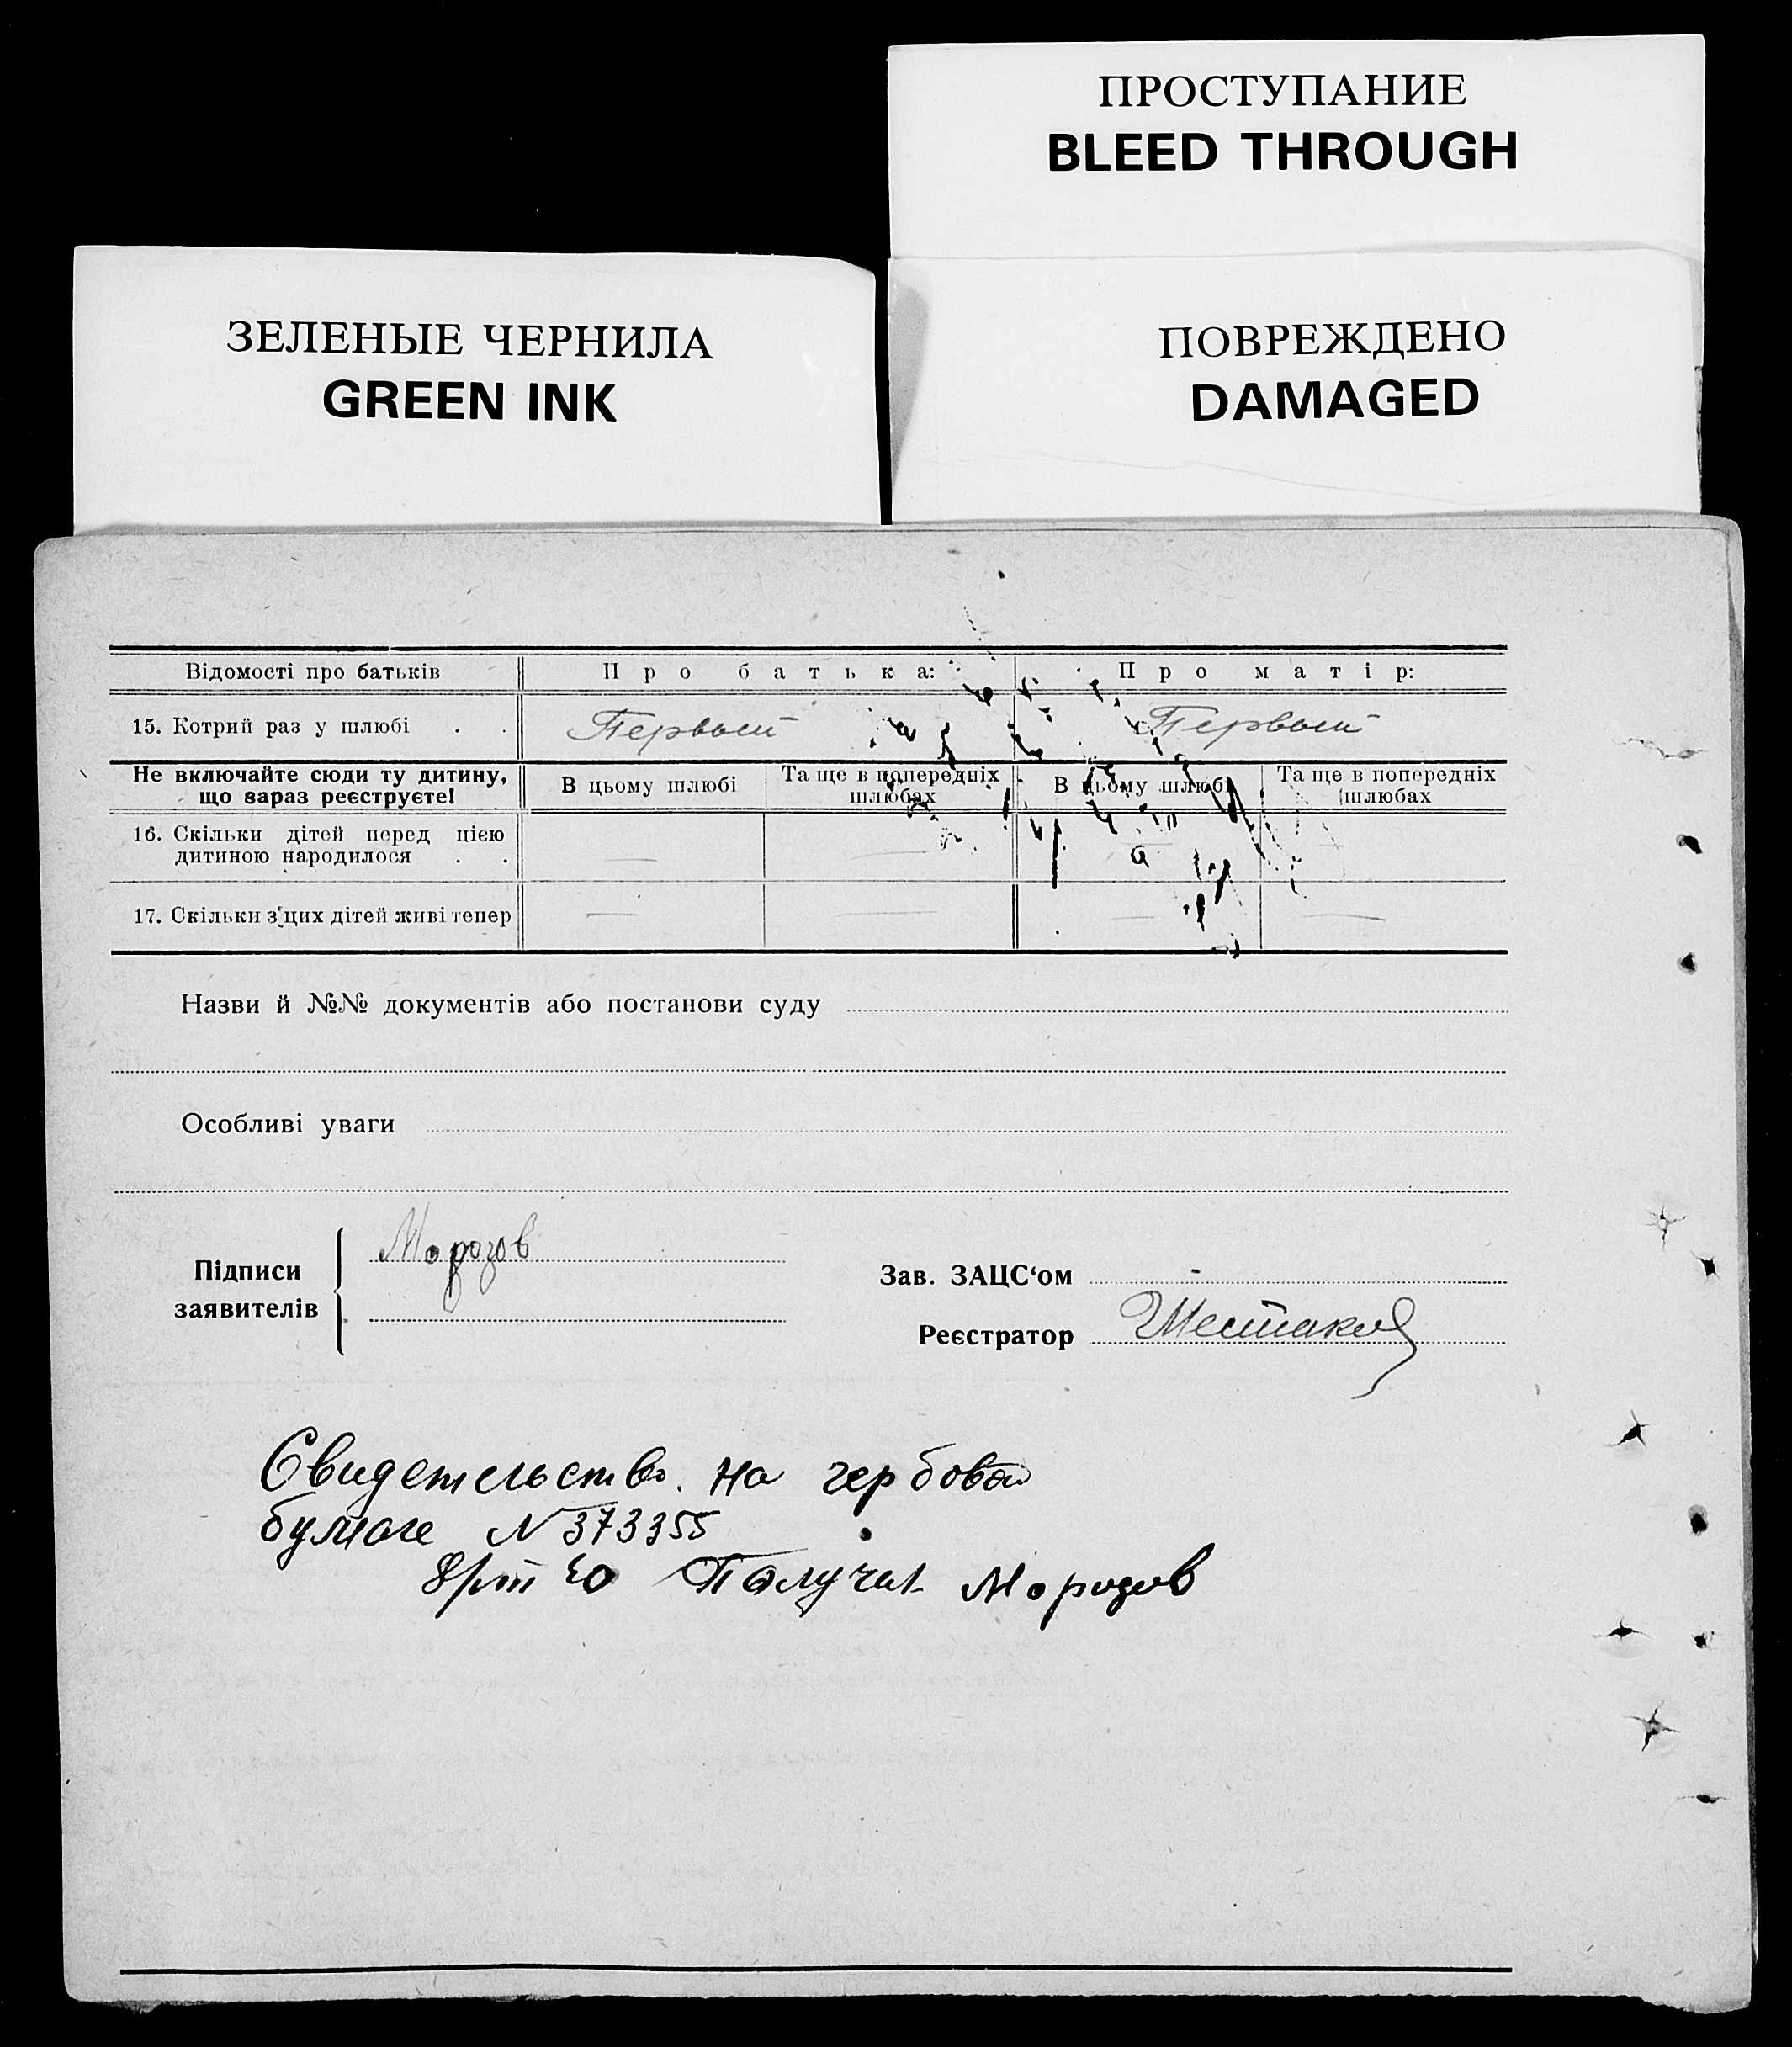 ПРОСТУПАНИЕ
BLEED THROUGH
ЗЕЛЕНЫЕ ЧЕРНИЛА
GREEN INK
ПОВРЕЖДЕНО
DAMAGED
Відомості про батьків Про батька: Про матір:
15. Котрий раз у шлюбі . . Первый Первый
Не включайте сюди ту дитину, що зараз реєструєте! В цьому шлюбі Та ще в попередніх шлюбах В цьому шлюбі Та ще в попередніх шлюбах
16. Скільки дітей перед цією
дитиною народилося . . — — — —
17. Скільки з цих дітей живі тепер — — — —
Назви й №№ документів або постанови суду
Особливі уваги
Підписи
заявителів
Морозов
Зав. ЗАЦС‘ом
Реєстратор
Свидетельство на гербовой
бумаге N 373355
Получил Морозов